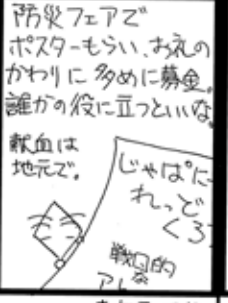 防災フェアで
ポスターもらい、お礼の
かわりに多めに募金。
誰かの役に立つといいな。
献血は
地元で。
じゃぱに
れっど
くろ
戦国的
な
アレ